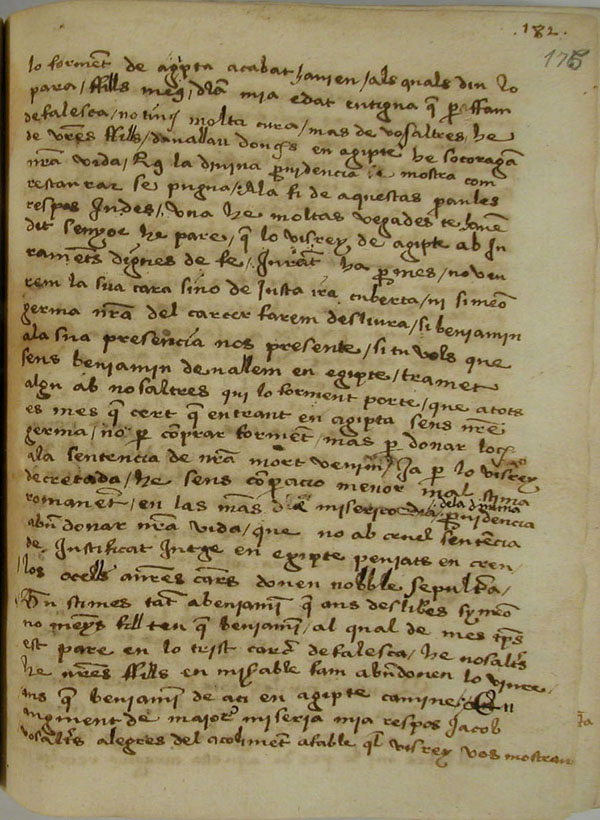 .182.
175
lo forment de agipta acabat havien / als quals diu lo
pare / ffills meus / dla mia edat antigua q̃ p ffam
defalesca / no tinch molta cura / mas de vosaltres / he
de vr̃es ffills / davallau donchs en agipte he socoragã
nr̃a vida / la divina p̱videncia mostra com
restaurar se pugna / Ala fi de aquestas paules
respos Judes / una he moltas vegades te havẽ
dit senyor he pare / q̃ lo visrey de agipte ab Ju
ramẽts dignes de fe / Jurãt ha p̱mes / no veu
rem la sua cara sino de Justa ira cuberta / ni simeõ
germa nr̃a del carcer farem desliura / si benjamin
ala sua presencia nos presente / si tu vols que
sens benjamin devallem en egipte / tramet
algu ab nosaltres qui lo forment porte / que atots
es mes q̃ cert q̃ entrant en agipta sens nr̃e
germa / no p̱ cõprar formẽt / mas p̱ donar loch
ala sentencia de nr̃a mort venim / Ja p̱ lo visrey
decretada / he sens cõpacio menor mal stima
romanẽt / en las mãs de misericordia / dela divina p̱videncia
abñdonar nr̃a vida / que no ab cruel sentẽcia
de Justificat Jutge en egipte penjats en creu /
los ocells nr̃es carñs donen nobble sepultr̃a /
no menys fill teu q̃ benjamĩ / al qual de mes tp̃s
est pare en lo trist carcr̃ defalesca / he nosalt̃s
he nr̃es ffills en mis̃able fam abñdonen lo viure /
ans q̃ benjamĩ de aci en agipte camine /
augment de major miseria mia respos Jacob
vosalt̃s alegres del acolimẽt afable ql̃ visrey vos mostrau